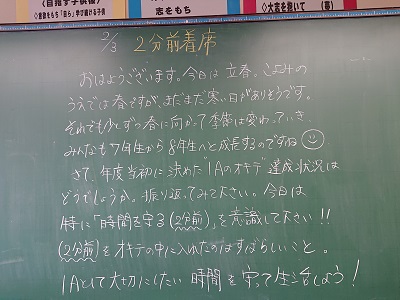 志をもち
2/3 2分前着席
おはようございます。今日は立春。こよみの
うえでは春ですが、まだまだ寒い日がありそうです。
それでも少しずつ春に向かって季節は変わっていき
みんなも7年生から8年生へと成長するのですね
さて、年度当初に決めた"1Aのオキテ"達成状況は
どうでしょうか。振り返ってみて下さい。今日は
特に「時間を守る(2分前)」を意識して下さい!!
(2分前)をオキテの中に入れたのはすばらしいこと。
1Aとして大切にしたい時間を守って生活しよう!